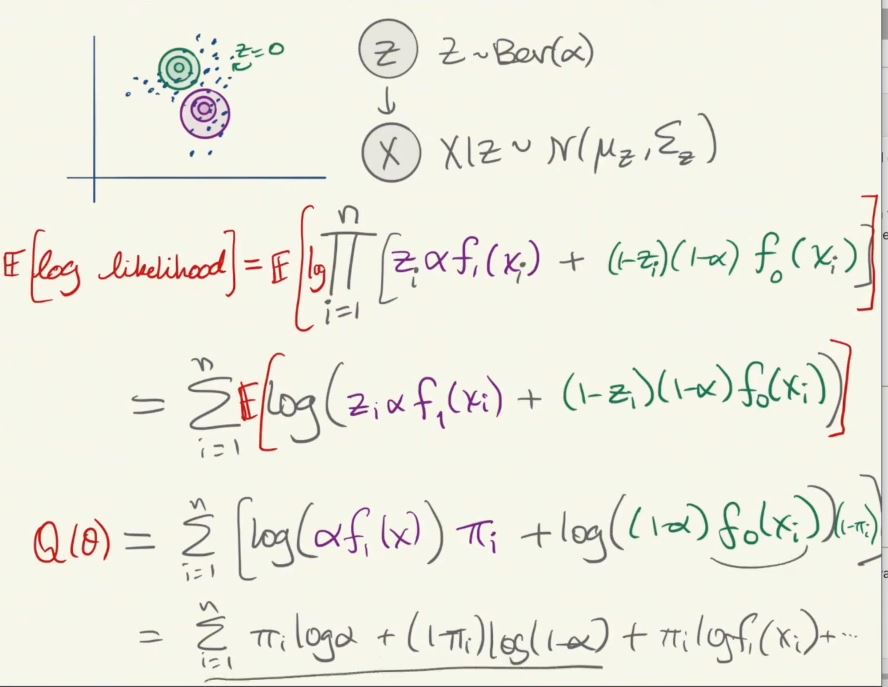 z=0
Z Z ~ Ber(α)
↓
X X|Z ~ N(μ_z, Σ_z)
E[log likelihood] = E[log ∏_{i=1}^{n} [z_i α f_1(x_i) + (1-z_i)(1-α) f_0(x_i)]]
= ∑_{i=1}^{n} E[log(z_i α f_1(x_i) + (1-z_i)(1-α) f_0(x_i))]
Q(θ) = ∑_{i=1}^{n} [log(α f_1(x)) π_i + log((1-α) f_0(x_i))(1-π_i)]
= ∑_{i=1}^{n} π_i log α + (1-π_i) log(1-α) + π_i log f_1(x_i) + ...